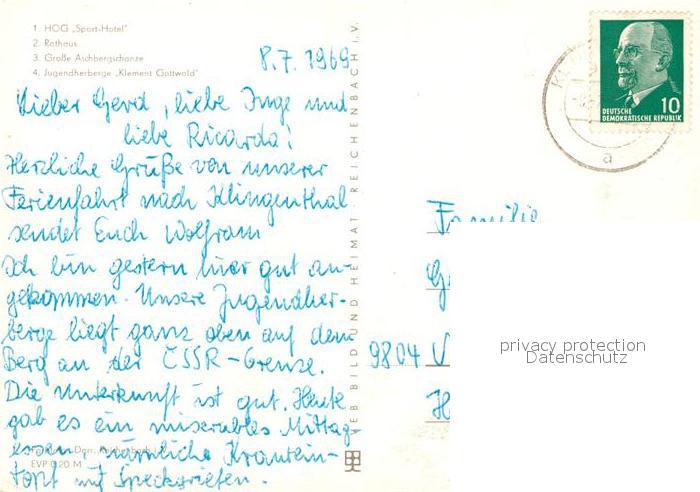 1. HOG „Sport-Hotel"
2. Rathaus
3. Große Aschbergschanze
4. Jugendherberge „Klement Gottwald"
8.7.1969
Lieber Gerd, liebe Inge und
liebe Ricarda!
Herzliche Grüße von unserer
Ferienfahrt nach Klingenthal
sendet Euch Wolfram
Ich bin gestern hier gut an-
gekommen. Unsere Jugendher-
berge liegt ganz oben auf dem
Berg an der ČSSR-Grenze.
Die Unterkunft ist gut. Heute
gab es ein miserables Mittag-
essen, nämliche Krautein-
topf mit Speckgriefen.
EVP 0,20 M
VEB BILD UND HEIMAT REICHENBACH i. V.
10
DEUTSCHE
DEMOKRATISCHE REPUBLIK
a
Familie
9804 V
privacy protection
Datenschutz